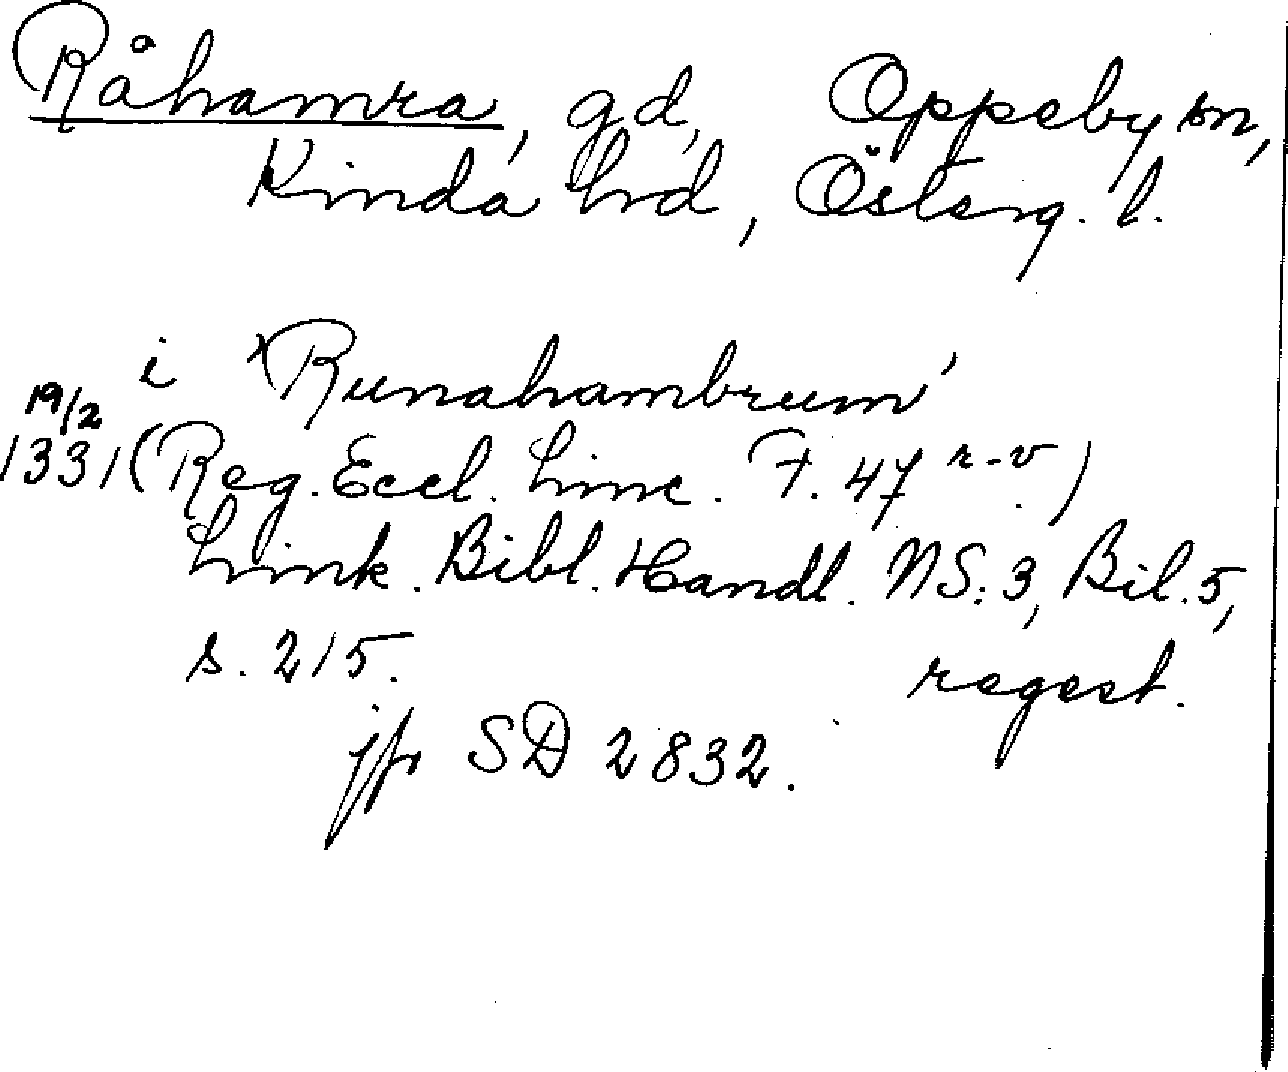 Råhamra, gd, Oppeby sn,
Kinda hd, Österg. l.
i 'Runahambrum'
19/2
1331 (Reg. Eccl. Linc. F. 47 r-v)
Link. Bibl. Handl. NS: 3, Bil. 5,
s. 215. regest.
jfr SD 2832.